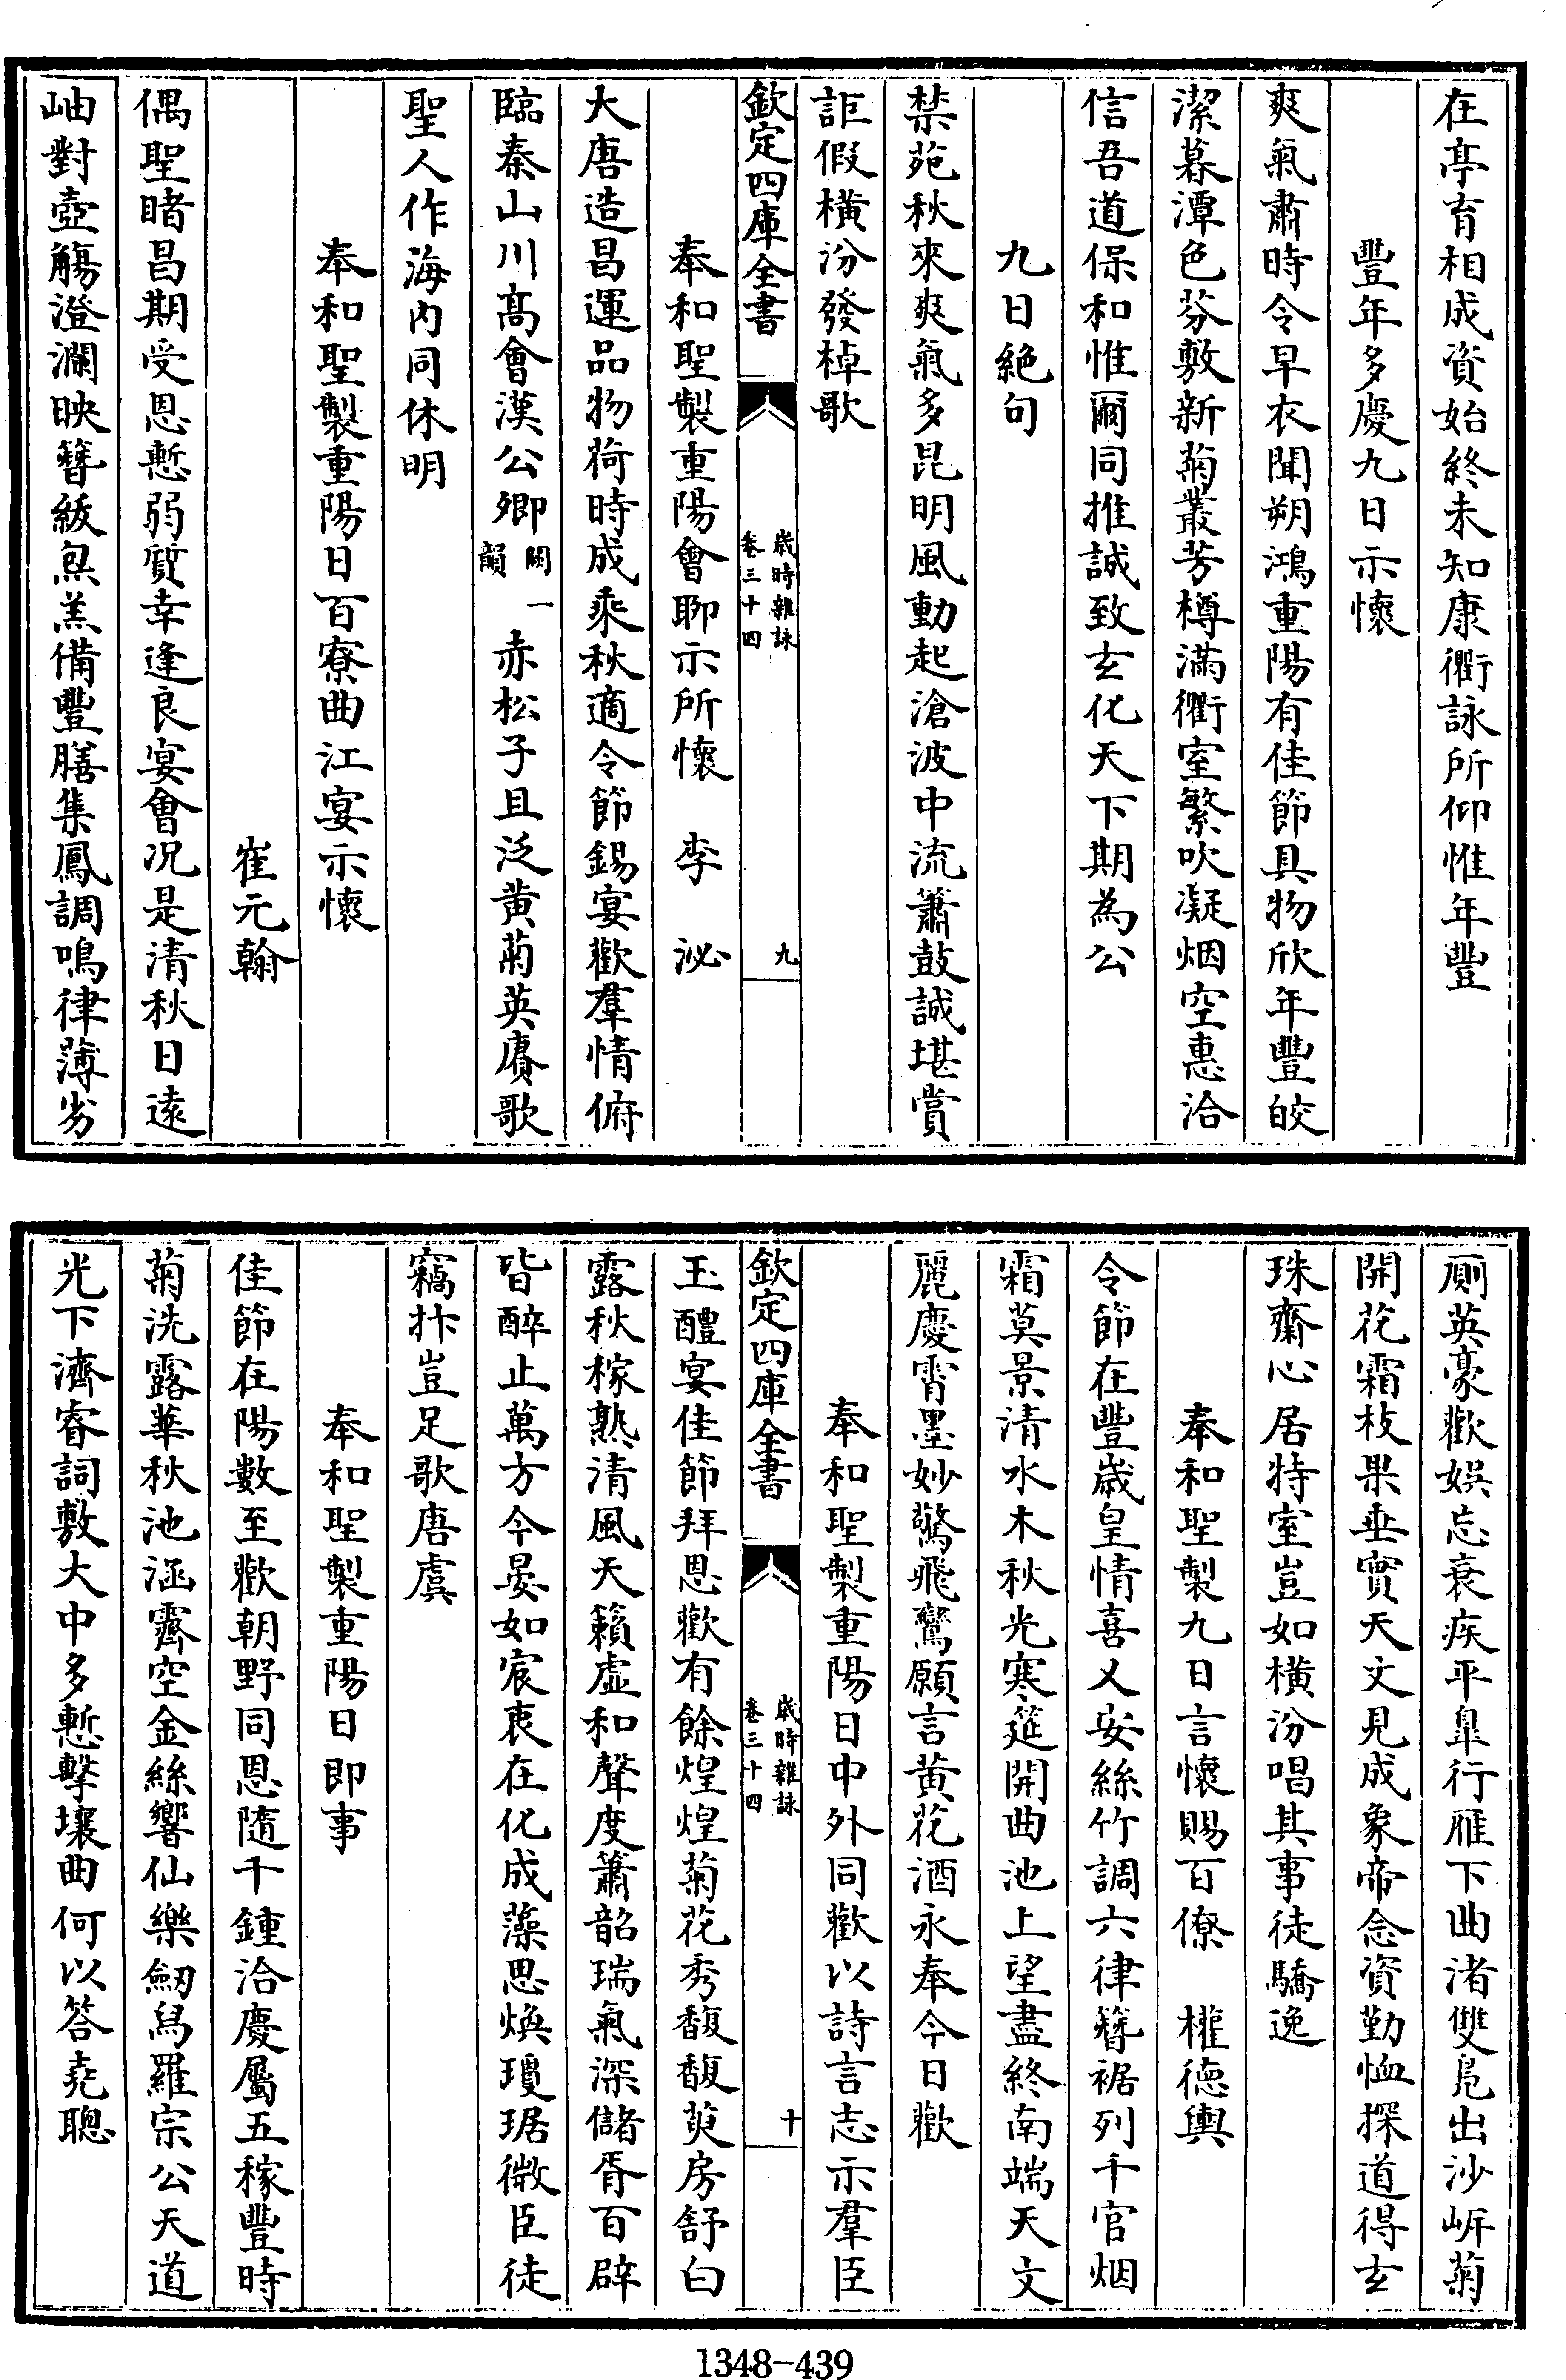 在亭育相成資始終未知康衢詠所仰惟年豐
豐年多慶九日示懷
爽氣肅時令早衣聞朔鴻重陽有佳節具物欣年豐皎
潔暮潭色芬敷新菊叢芳樽滿衢室繁吹凝烟空惠洽
信吾道保和惟爾同推誠致玄化天下期為公
九日絶句
禁苑秋來爽氣多昆明風動起滄波中流簫鼓誠堪賞
詎假橫汾發棹歌
欽定四庫全書
歲時雜詠
卷三十四
九
奉和聖製重陽會聊示所懷 李 泌
大唐造昌運品物荷時成乘秋適令節錫宴歡羣情俯
臨秦山川髙會漢公卿闕一韻赤松子且泛黄菊英賡歌
聖人作海内同休明
奉和聖製重陽日百寮曲江宴示懷
崔元翰
偶聖睹昌期受恩慙弱質幸逢良宴會况是清秋日遠
岫對壺觴澄瀾映簪紱炰羔備豐膳集鳳調鳴律薄劣
厠英豪歡娯忘衰疾平臯行雁下曲渚雙凫出沙岍菊
開花霜枝果垂實天文見成象帝念資勤恤探道得玄
珠齋心居特室豈如橫汾唱其事徒驕逸
奉和聖製九日言懷賜百僚 權德輿
令節在豐歲皇情喜乂安絲竹調六律簪裾列千官烟
霜莫景清水木秋光寒筵開曲池上望盡終南端天文
麗慶霄墨妙驚飛鸞願言黄花酒永奉今日歡
奉和聖製重陽日中外同歡以詩言志示羣臣
玉醴宴佳節拜恩歡有餘煌煌菊花秀馥馥萸房舒白
露秋稼熟清風天籟虛和聲度簫韶瑞氣深儲胥百辟
皆醉止萬方今晏如宸衷在化成藻思煥瓊琚微臣徒
竊抃豈足歌唐虞
奉和聖製重陽日即事
佳節在陽數至歡朝野同恩隨千鍾洽慶屬五稼豐時
菊洗露華秋池涵霽空金絲響仙樂劒舄羅宗公天道
光下濟睿詞敷大中多慙擊壤曲何以答堯聰
欽定四庫全書
歲時雜詠
卷三十四
十
1348-439